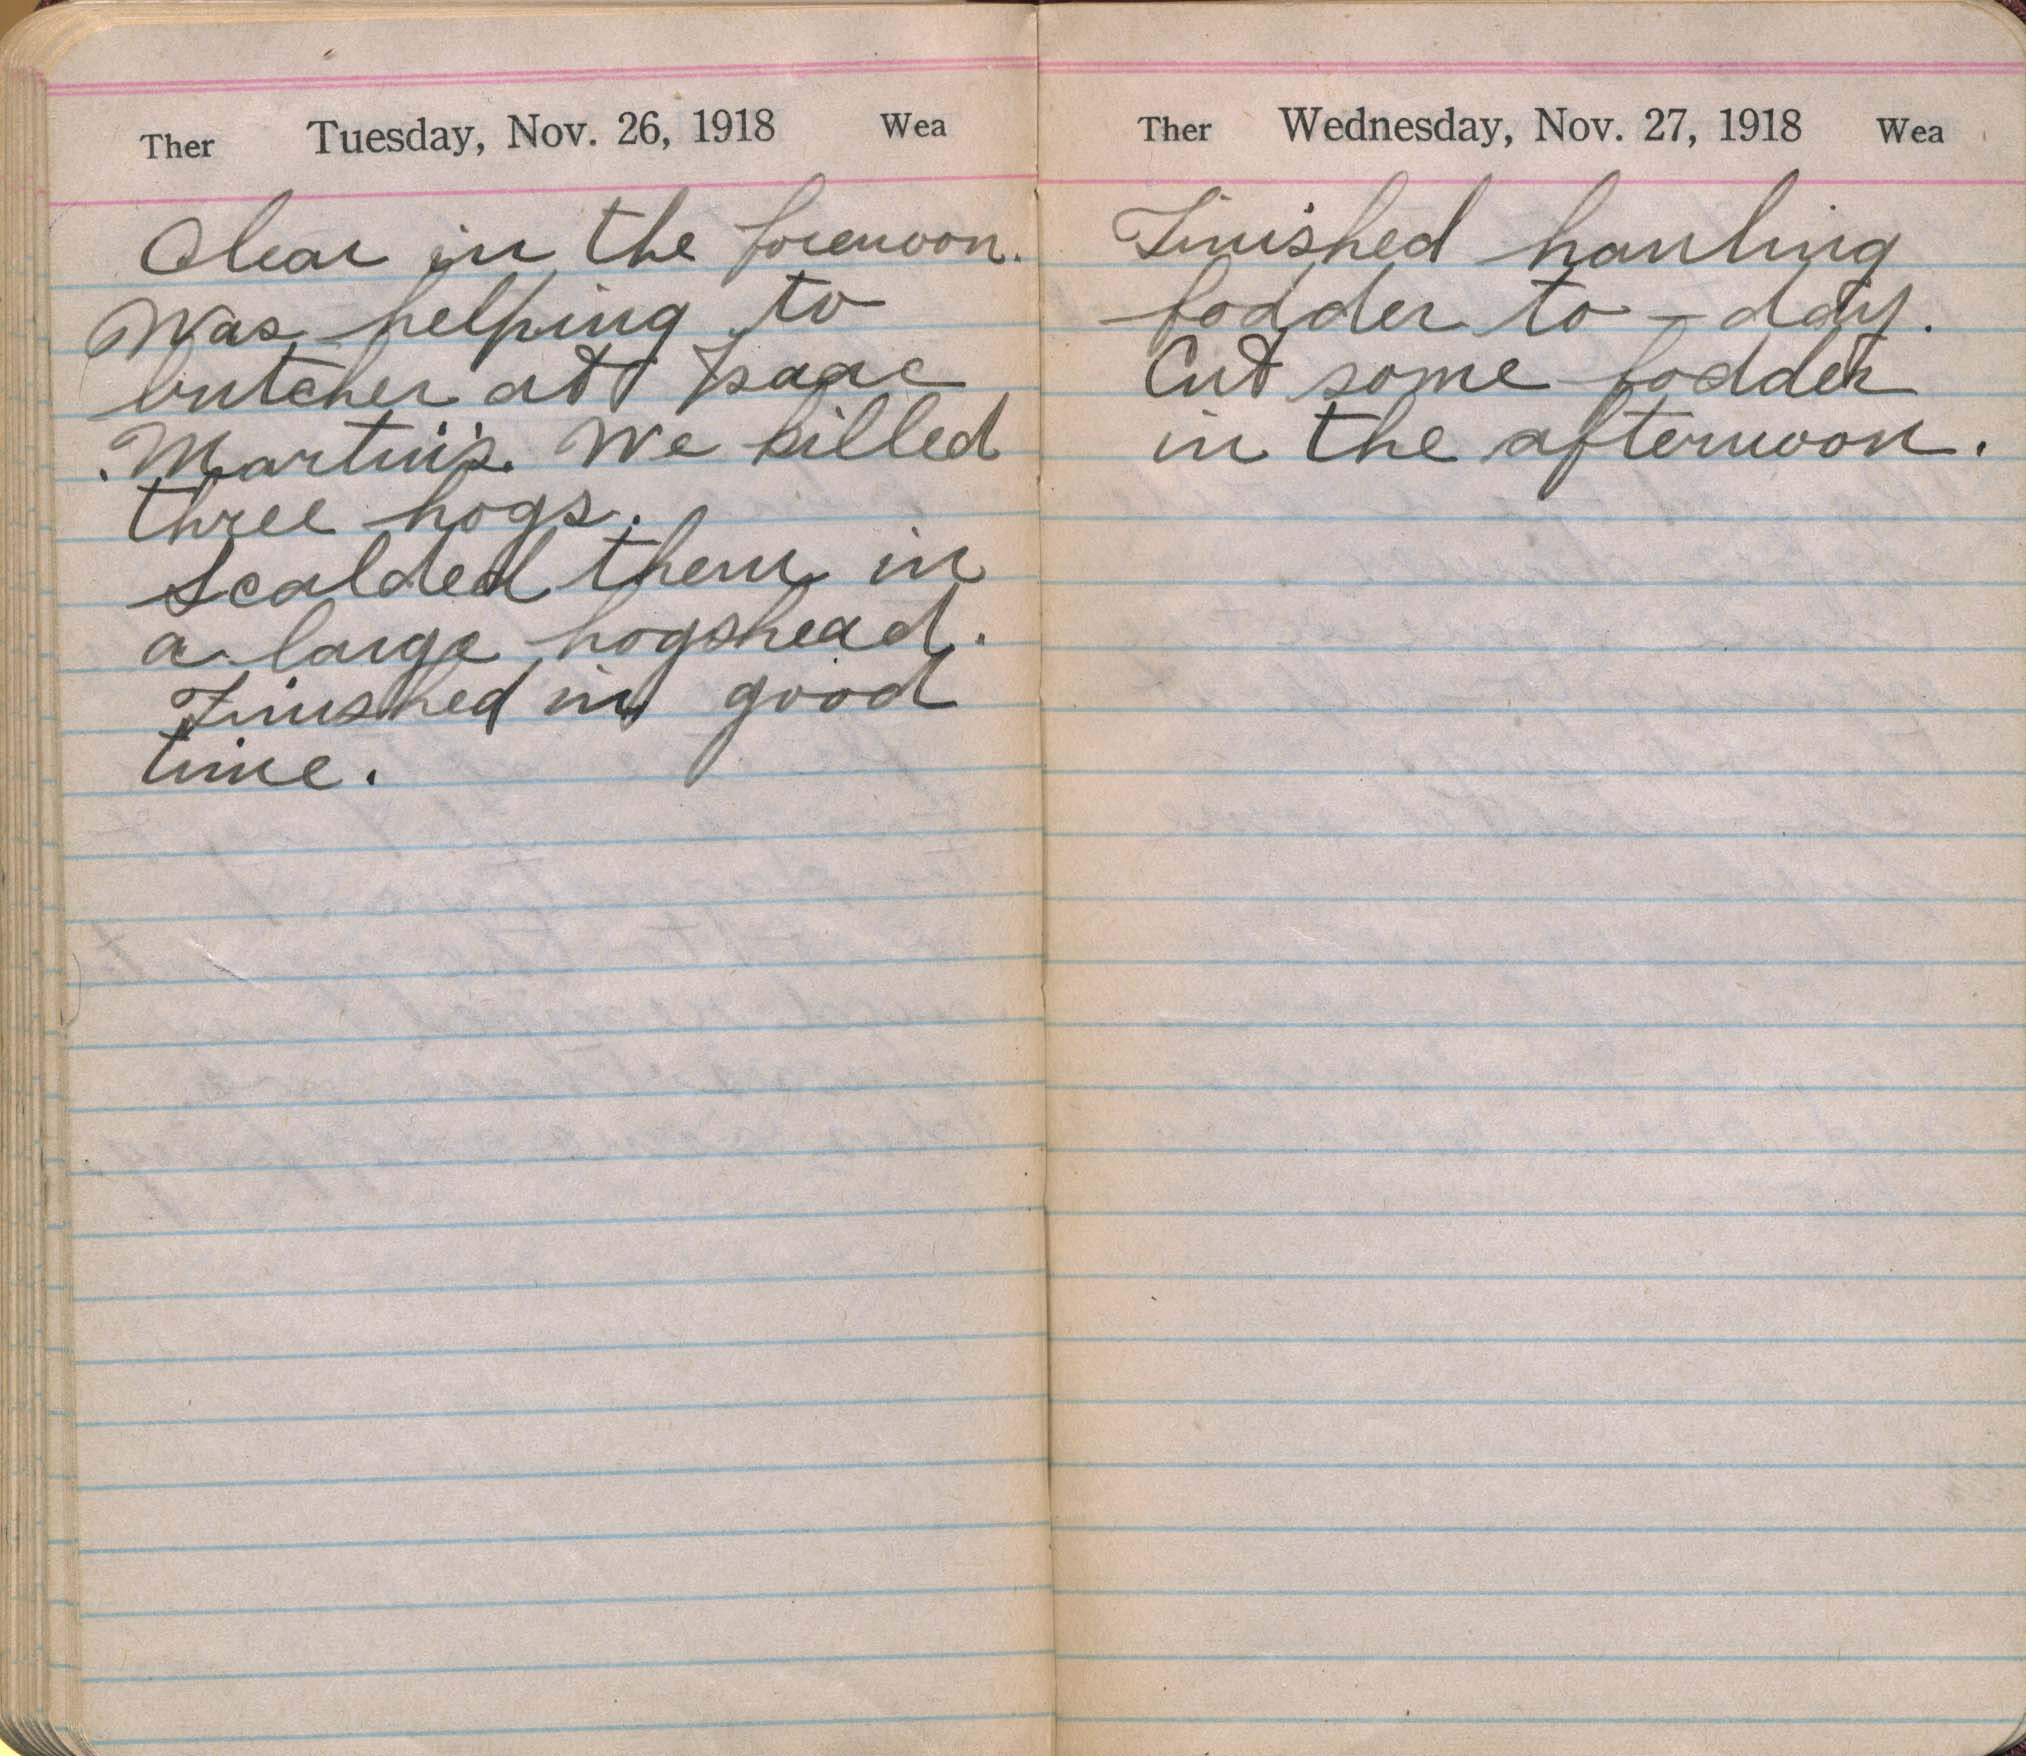 Ther Tuesday, Nov. 26, 1918 Wea
Clear in the forenoon.
Was helping to
butcher at Isaac
Martin's. We killed
three hogs.
Scalded them in
a large hogshead.
Finished in good
time.
Ther Wednesday, Nov. 27, 1918 Wea
Finished hauling
fodder to-day.
Cut some fodder
in the afternoon.